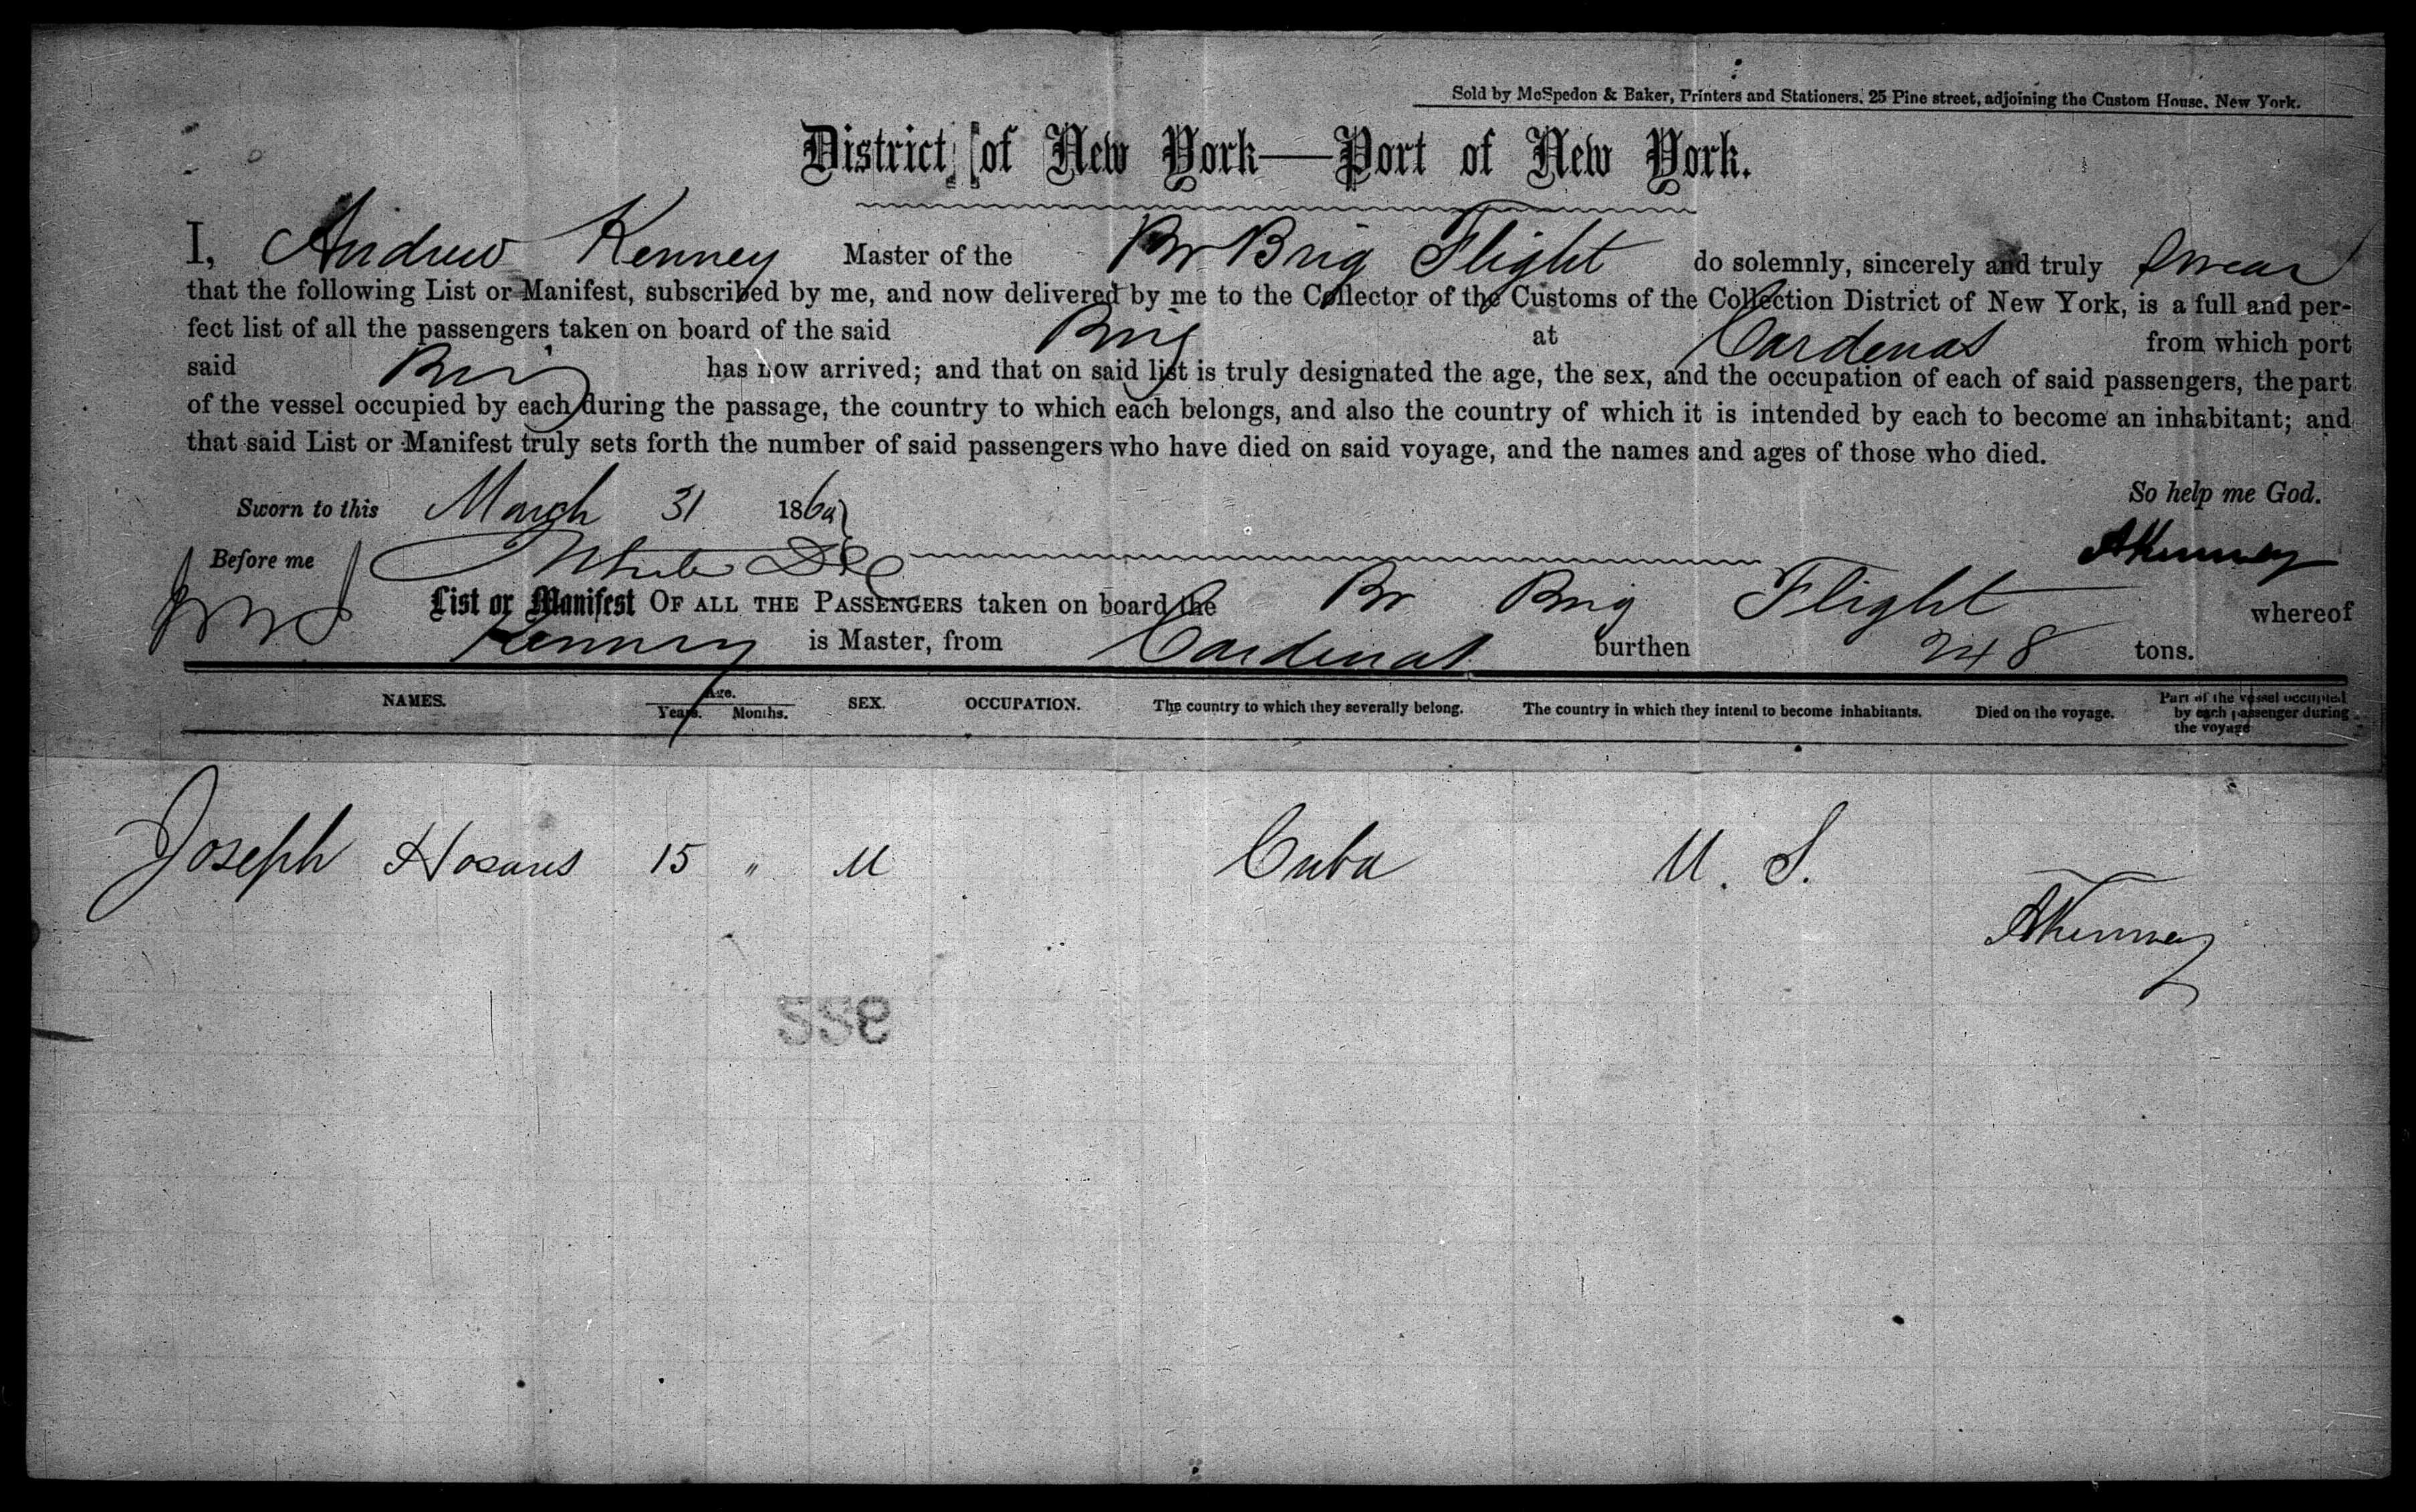 Sold by McSpedon & Baker, Printers and Stationers, 25 Pine street, adjoining the Custom House, New York.
District of New York—Port of New York.
I, Andrew Kenney Master of the Br Brig Flight do solemnly, sincerely and truly swear
that the following List or Manifest, subscribed by me, and now delivered by me to the Collector of the Customs of the Collection District of New York, is a full and per-
fect list of all the passengers taken on board of the said Brig at Cardenas from which port
said Brig has now arrived; and that on said list is truly designated the age, the sex, and the occupation of each of said passengers, the part
of the vessel occupied by each during the passage, the country to which each belongs, and also the country of which it is intended by each to become an inhabitant; and
that said List or Manifest truly sets forth the number of said passengers who have died on said voyage, and the names and ages of those who died.
So help me God.
Sworn to this March 31 186
Before me
AKenney
List or Manifest OF ALL THE PASSENGERS taken on board the Br Brig Flight whereof
Kenney is Master, from Cardenas burthen 248 tons.
NAMES. Age. Years. Months. SEX. OCCUPATION. The country to which they severally belong. The country in which they intend to become inhabitants. Died on the voyage. Part of the vessel occupied by each passenger during the voyage
Joseph 15 " M Cuba U. S.
AKenney
922